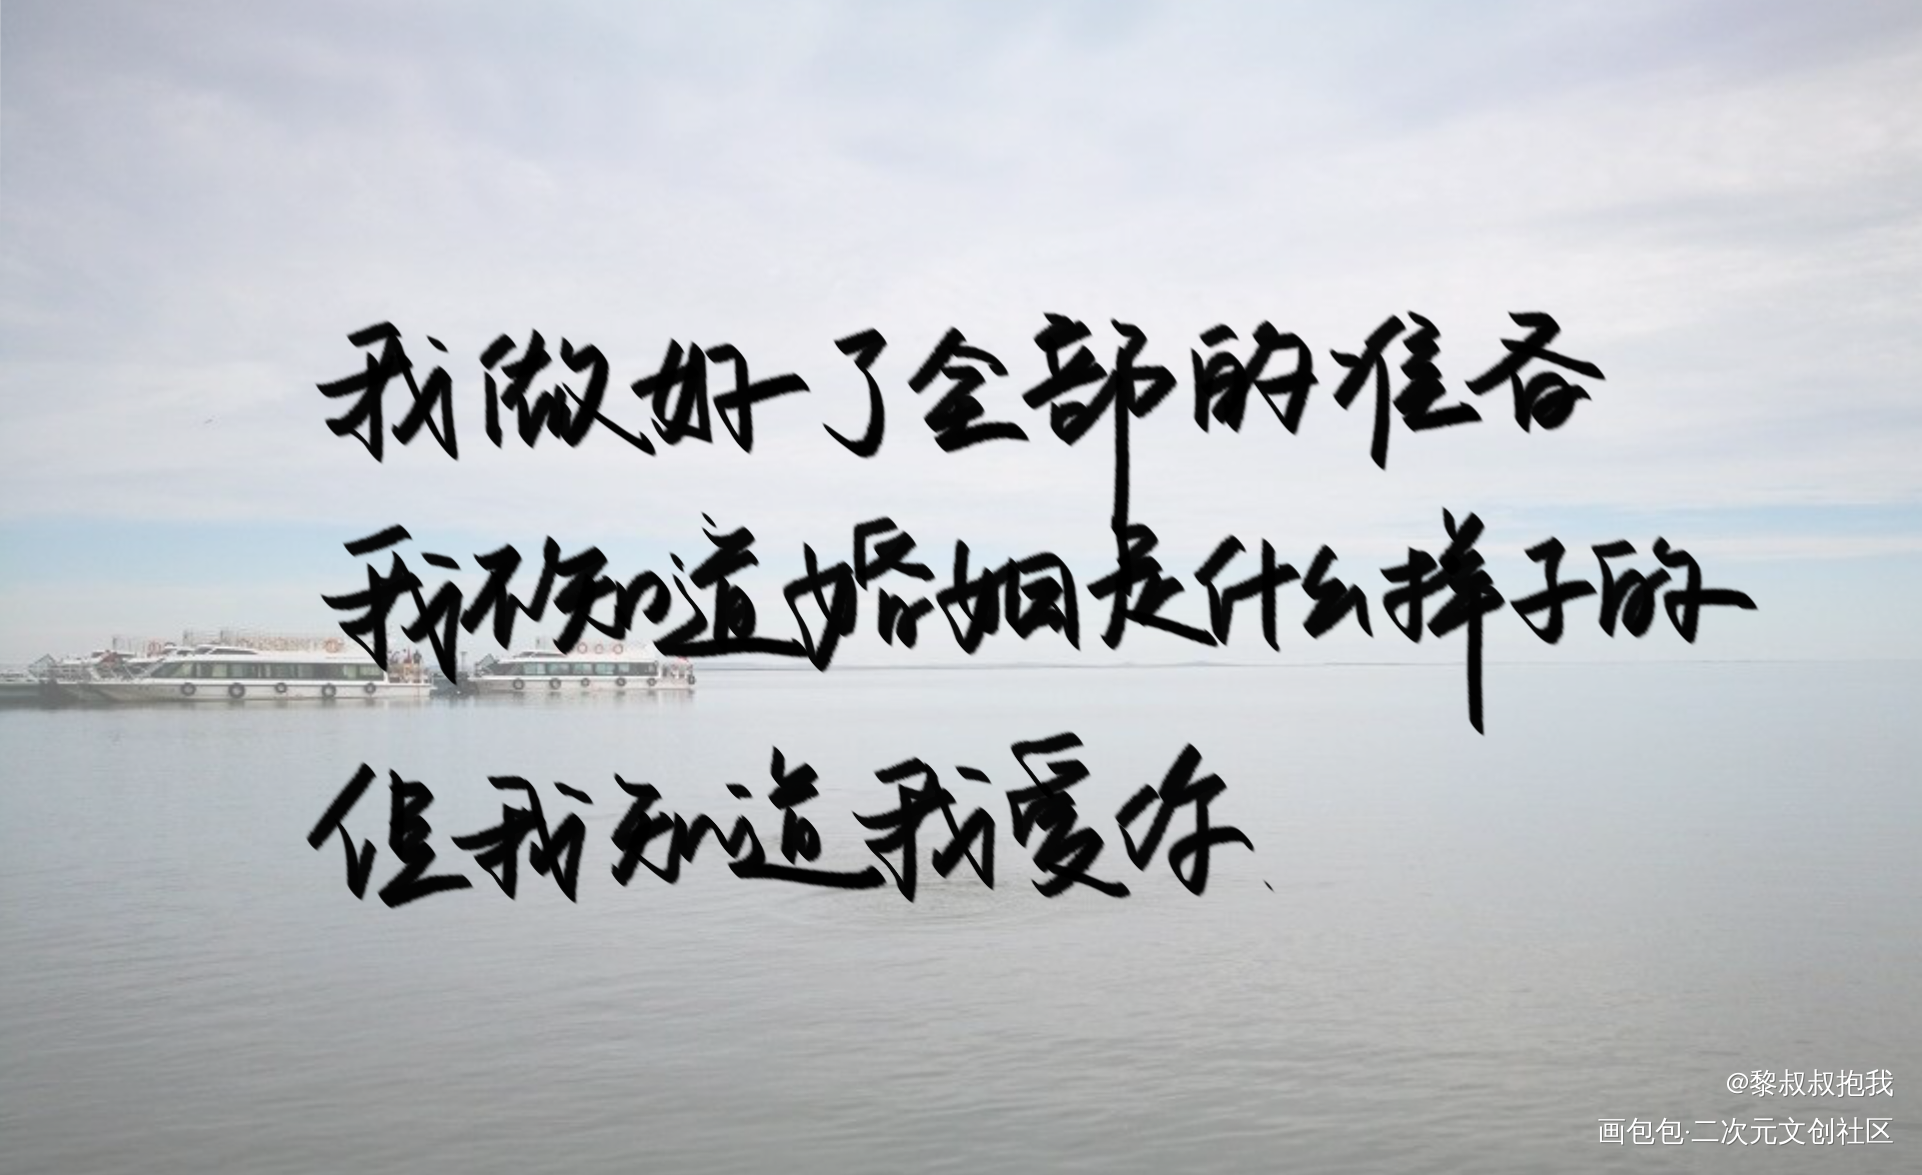 我做好了全部的准备
我不知道婚姻是什么样子的
但我知道我爱你、
@黎叔叔抱我
画包包·二次元文创社区